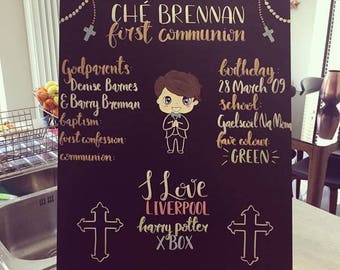 CHÉ BRENNAN
first communion
Godparents:
Denise Barnes
& Barry Brennan
baptism:
first confession:
communion:
birthday:
28 March '09
school:
Gaelscoil Na
fave colour:
GREEN
I Love
LIVERPOOL
harry potter
X BOX